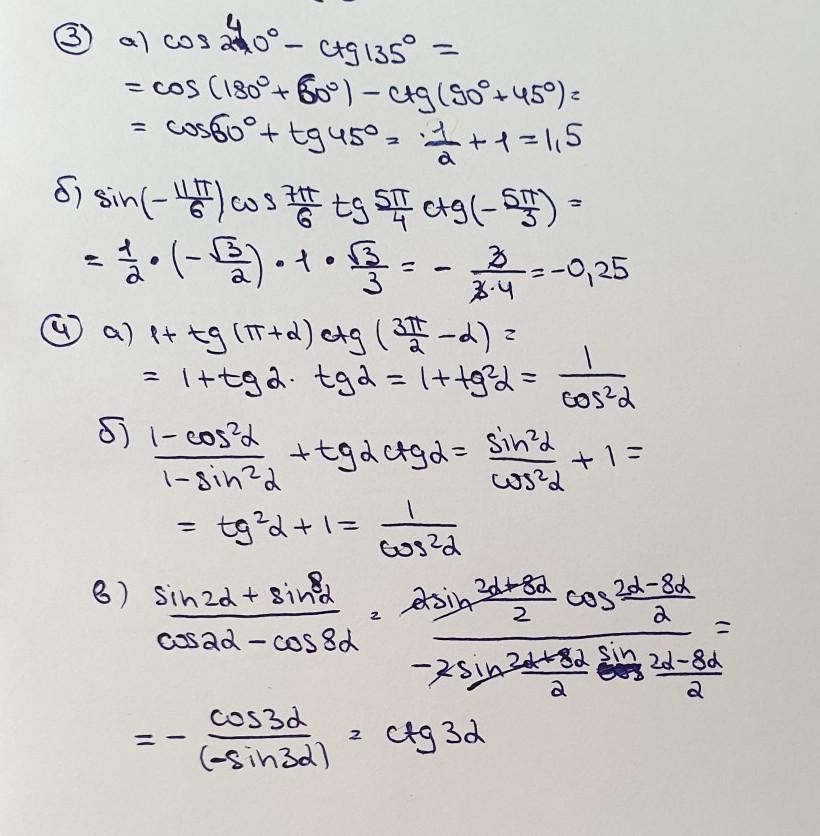 ③ а) cos 240° − ctg 135° =
= cos (180° + 60°) − ctg (90° + 45°) =
= cos 60° + tg 45° = 1/2 + 1 = 1,5
б) sin(−11π/6) cos 7π/6 tg 5π/4 ctg(−5π/3) =
= 1/2 • (−√3/2) • 1 • √3/3 = − 3/(3·4) = −0,25
④ а) 1 + tg (π+α) ctg (3π/2 − α) =
= 1 + tgα · tgα = 1 + tg²α = 1/cos²α
б) (1 − cos²α)/(1 − sin²α) + tgα ctgα = sin²α/cos²α + 1 =
= tg²α + 1 = 1/cos²α
в) (sin2α + sin8α)/(cos2α − cos8α) = (2sin (2α+8α)/2 cos (2α−8α)/2)/(−2sin (2α+8α)/2 sin (2α−8α)/2) =
= − cos3α/(−sin3α) = ctg 3α